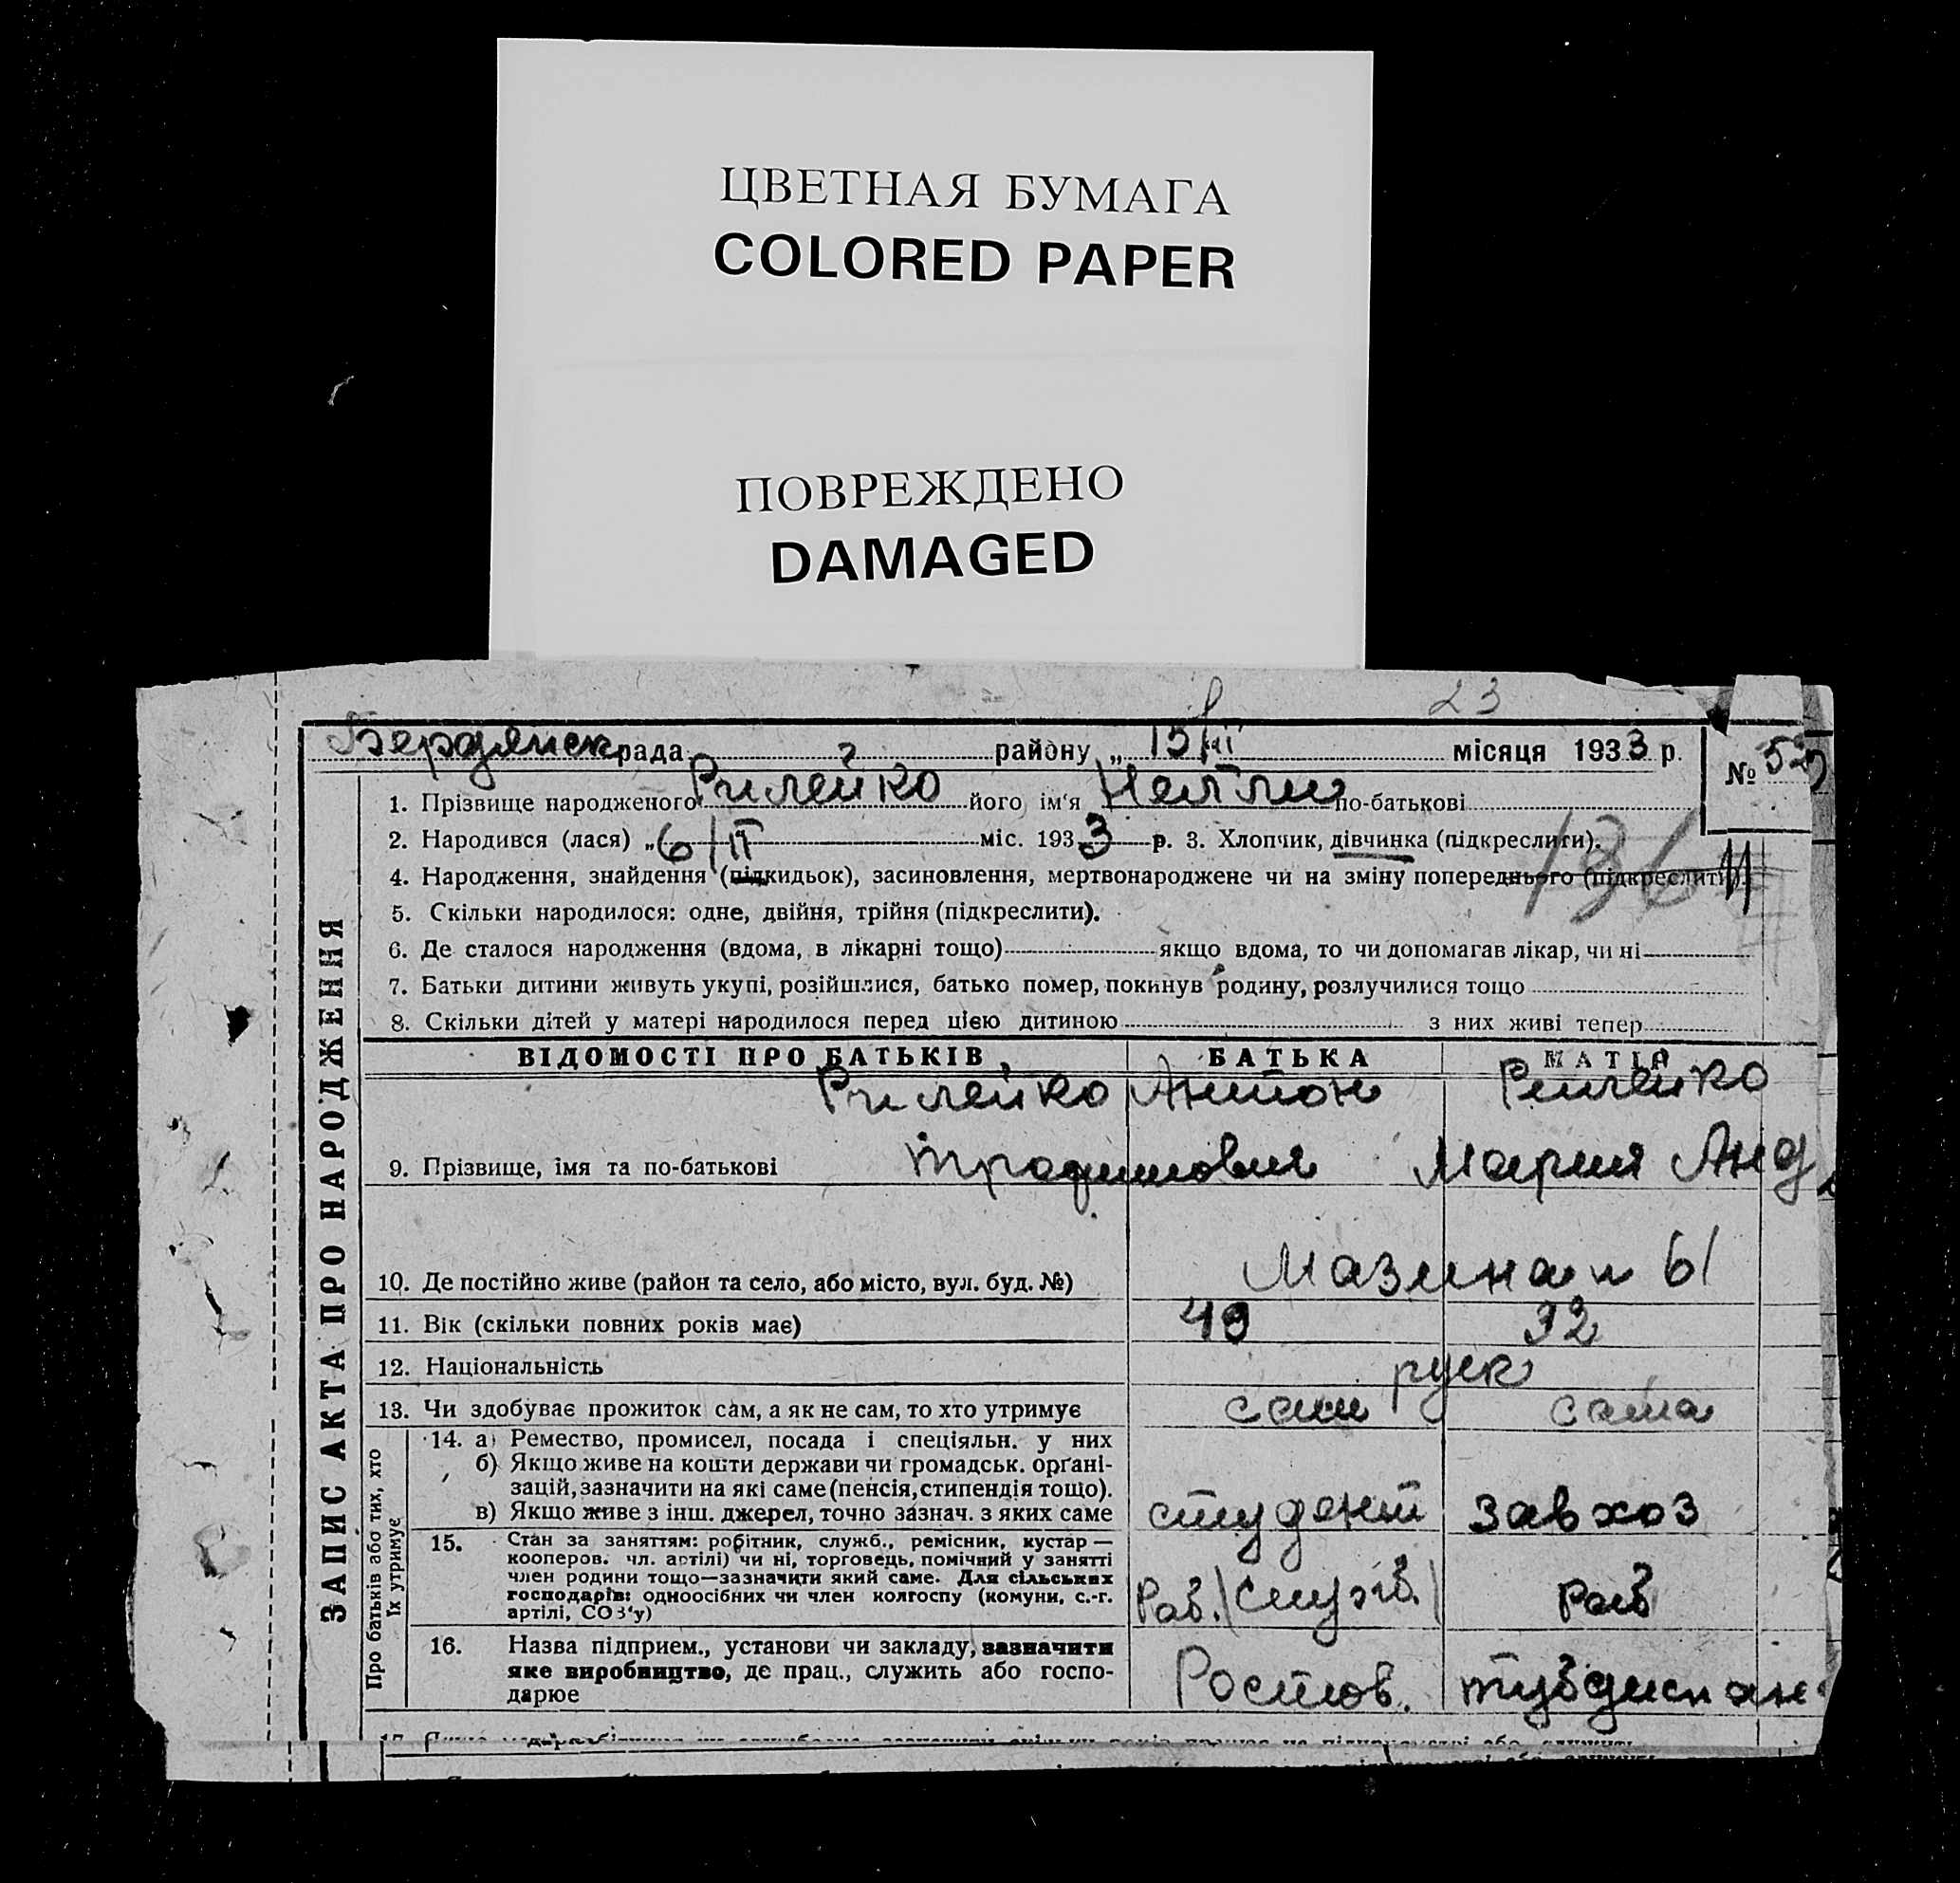 ЦВЕТНАЯ БУМАГА
COLORED PAPER
ПОВРЕЖДЕНО
DAMAGED
23
Бердянск рада г району „ 15/III місяця 1933 р.
№ 52
ЗАПИС АКТА ПРО НАРОДЖЕННЯ
1. Прізвище народженого Рилейко його ім'я Нелли по-батькові
2. Народився (лася) „6/II міс. 1933 р. 3. Хлопчик, дівчинка (підкреслити).
136
4. Народження, знайдення (підкидьок), засиновлення, мертвонароджене чи на зміну попереднього (підкреслити).
5. Скільки народилося: одне, двійня, трійня (підкреслити).
6. Де сталося народження (вдома, в лікарні тощо) якщо вдома, то чи допомагав лікар, чи ні
7. Батьки дитини живуть укупі, розійшлися, батько помер, покинув родину, розлучилися тощо
8. Скільки дітей у матері народилося перед цією дитиною з них живі тепер
ВІДОМОСТІ ПРО БАТЬКІВ БАТЬКА МАТІР
Рилейко Антон Рилейко
9. Прізвище, імя та по-батькові Мария Анд
10. Де постійно живе (район та село, або місто, вул. буд. №) 61
11. Вік (скільки повних років має) 49 32
12. Національність руск
13. Чи здобуває прожиток сам, а як не сам, то хто утримує сам сама
Про батьків або тих, хто
їх утримує
14. а) Ремество, промисел, посада і спеціяльн. у них
б) Якщо живе на кошти держави чи громадськ. орґані-
зацій, зазначити на які саме (пенсія, стипендія тощо).
в) Якщо живе з інш. джерел, точно зазнач. з яких саме студент завхоз
15. Стан за заняттям: робітник, служб., ремісник, кустар —
кооперов. чл. артілі) чи ні, торговець, помічний у занятті
член родини тощо—зазначити який саме. Для сільських
господарів: одноосібних чи член колгоспу (комуни, с.-г.
артілі, СОЗ'у) Раб. Раб
16. Назва підприєм., установи чи закладу, зазначити
яке виробництво, де прац., служить або госпо-
дарює Ростов. тубдиспан